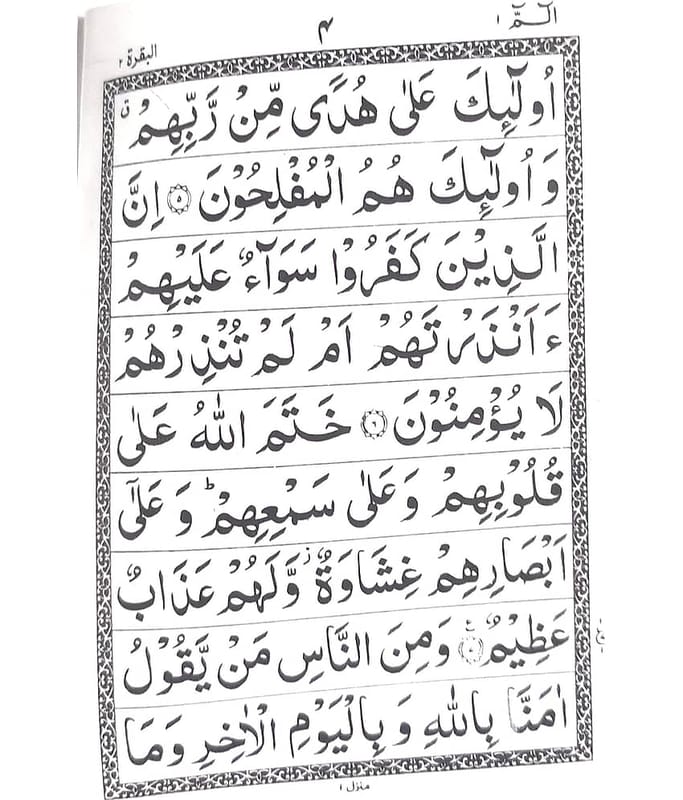 الٓـمّٓ ١
۴
البقرة ٢
اُولٰٓئِكَ عَلٰى هُدًى مِّنْ رَّبِّهِمْ ۗ
وَ اُولٰٓئِكَ هُمُ الْمُفْلِحُوْنَ ۝٥ اِنَّ
الَّذِيْنَ كَفَرُوْا سَوَآءٌ عَلَيْهِمْ
ءَاَنْذَرْتَهُمْ اَمْ لَمْ تُنْذِرْهُمْ
لَا يُؤْمِنُوْنَ ۝٦ خَتَمَ اللّٰهُ عَلٰى
قُلُوْبِهِمْ وَ عَلٰى سَمْعِهِمْ ؕ وَ عَلٰٓى
اَبْصَارِهِمْ غِشَاوَةٌ ز وَّ لَهُمْ عَذَابٌ
عَظِيْمٌ ۝٧ وَ مِنَ النَّاسِ مَنْ يَّقُوْلُ
اٰمَنَّا بِاللّٰهِ وَ بِالْيَوْمِ الْاٰخِرِ وَ مَا
منزل ١